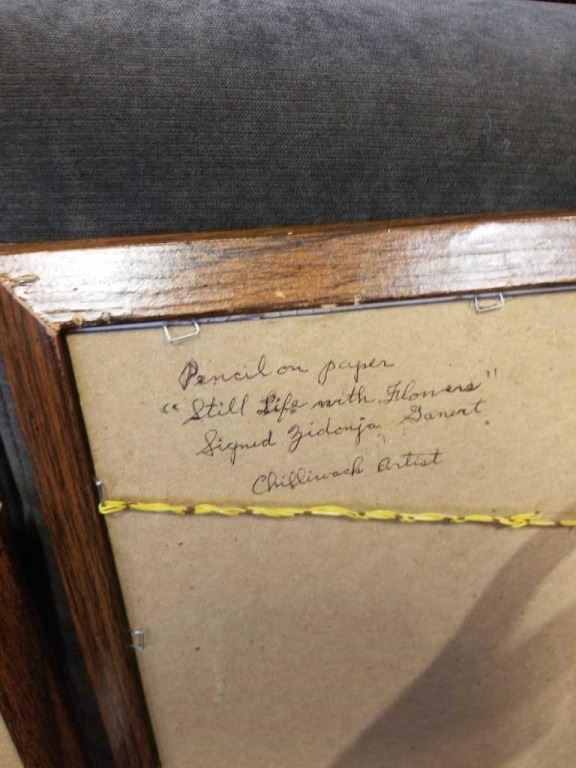 Pencil on paper
"Still Life with Flowers"
Signed Zidonja Ganert
Chilliwack Artist